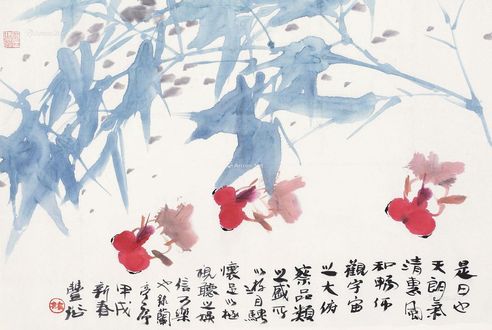 是日也
天朗氣
清惠風
和暢仰
觀宇宙
之大俯
察品類
之盛所
以遊目騁
懷足以極
視聽之娛
信可樂
也錄蘭
亭序
甲戌
新春